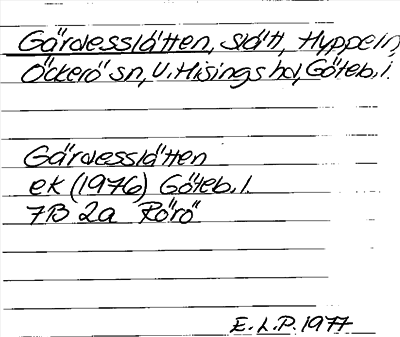 Gärdesslåtten, slått, Hyppeln,
Öckerö sn, V. Hisings hd, Göteb. l.
Gärdesslåtten
ek (1976) Göteb. l.
7B 2a Rörö
E. L. P. 1977